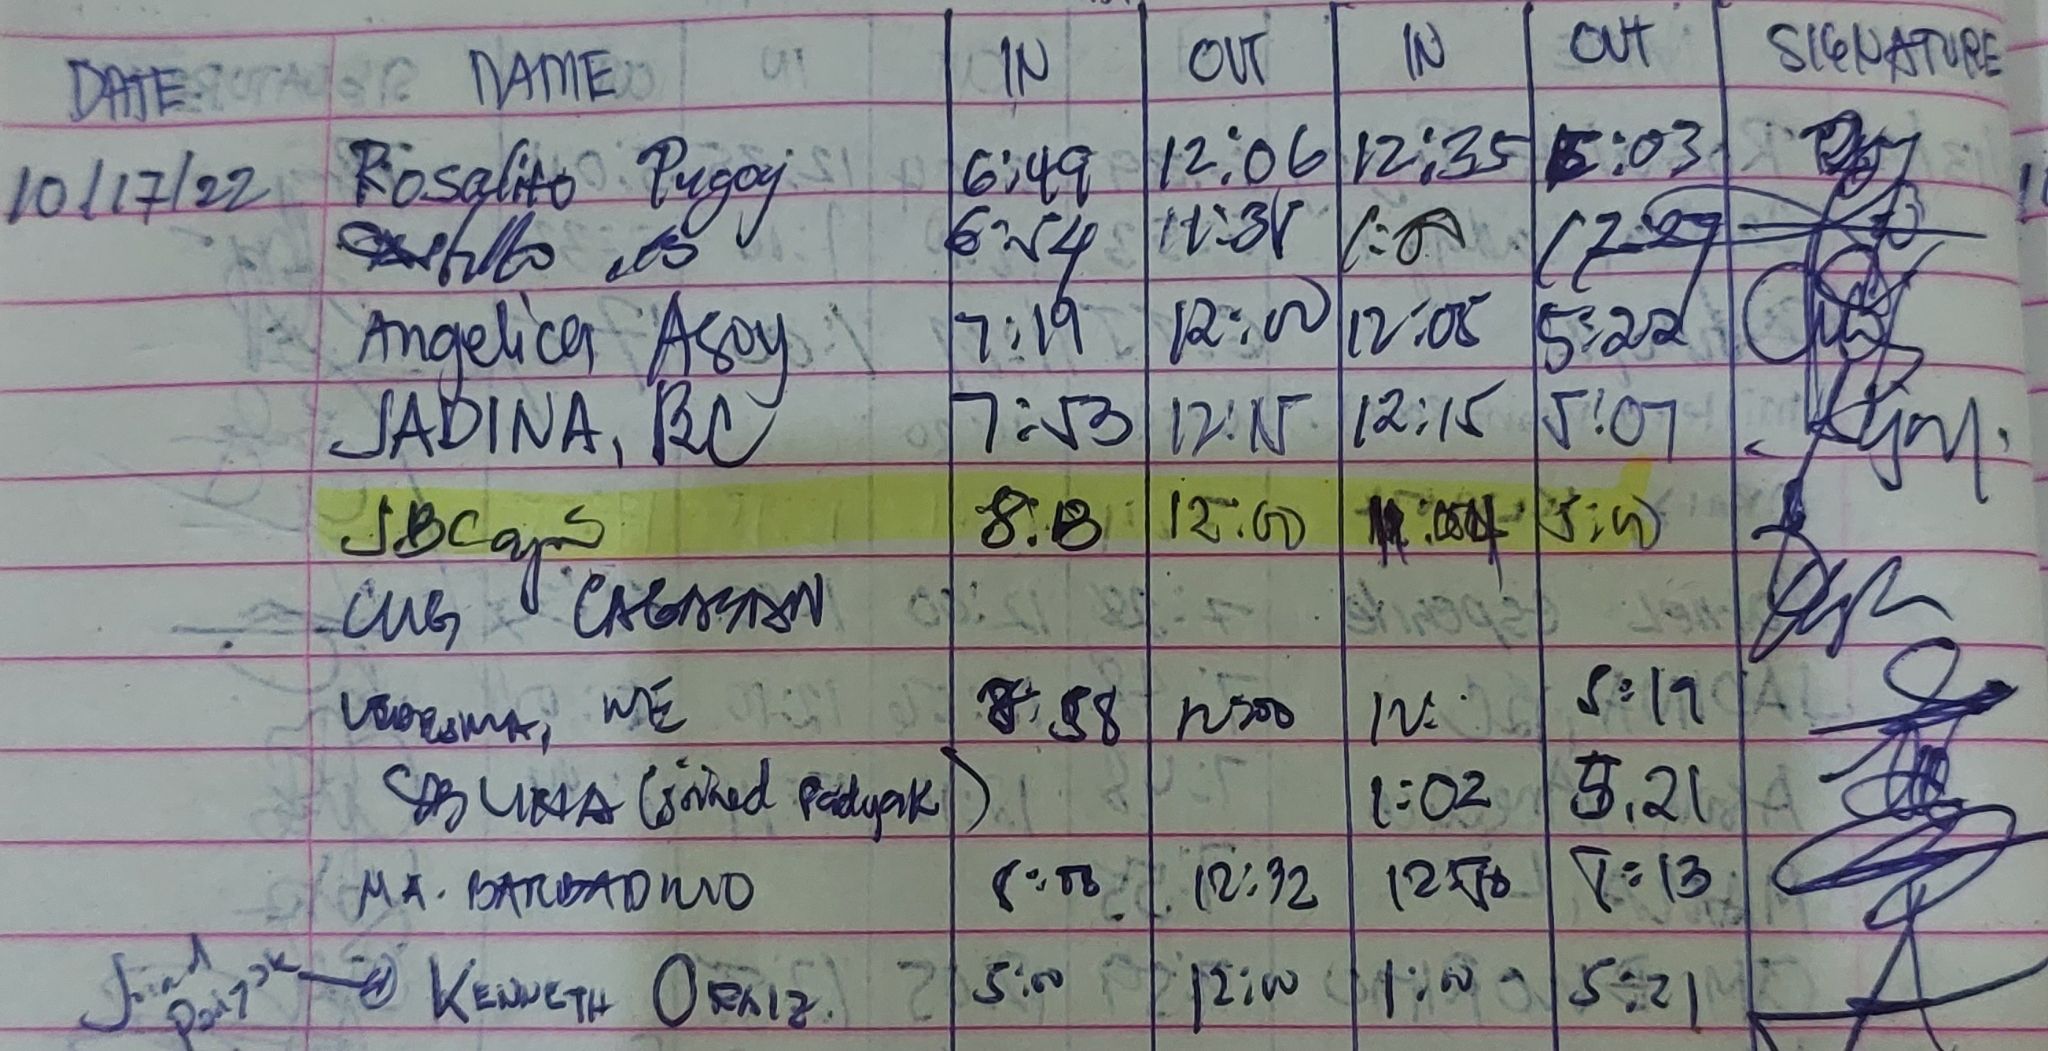 DATE NAME IN OUT IN OUT SIGNATURE
10/17/22 Rosalito Pugoy 6:49 12:06 12:35 5:03
6:54 11:35 1:00
Angelica Asoy 7:19 12:00 12:05 5:22
JADINA, RC 7:53 12:15 12:15 5:07
JBCayS 8:13 12:00 5:00
CUG CAGATAN
LEDESMA, WE 8:58 12:00 12: 5:19
(joined Padyak) 1:02 5:21
MA. BARBADILLO 8:00 12:32 12:50 5:13
Joined Padyak → KENNETH ORTIZ. 5:00 12:00 1:00 5:21